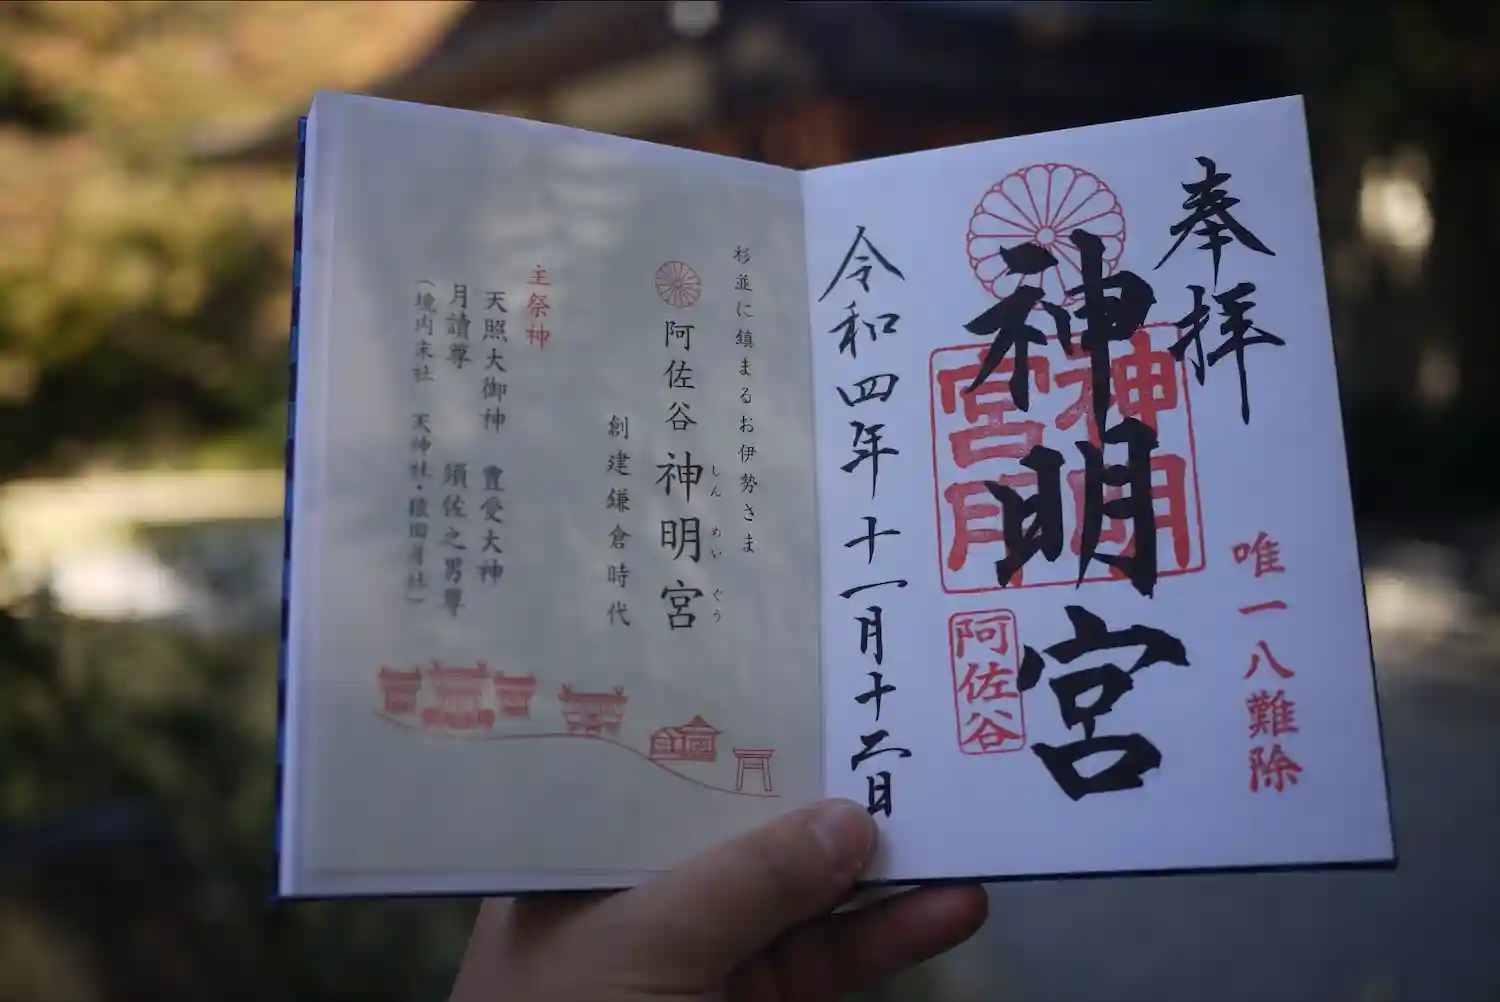 奉拝
神明宮
神明宮
阿佐谷
唯一八難除
令和四年十一月十二日
杉並に鎮まるお伊勢さま
阿佐谷神明宮
しんめいぐう
創建鎌倉時代
主祭神
天照大御神 豊受大神
月讀尊 須佐之男尊
（境内末社 天神社・猿田彦社）